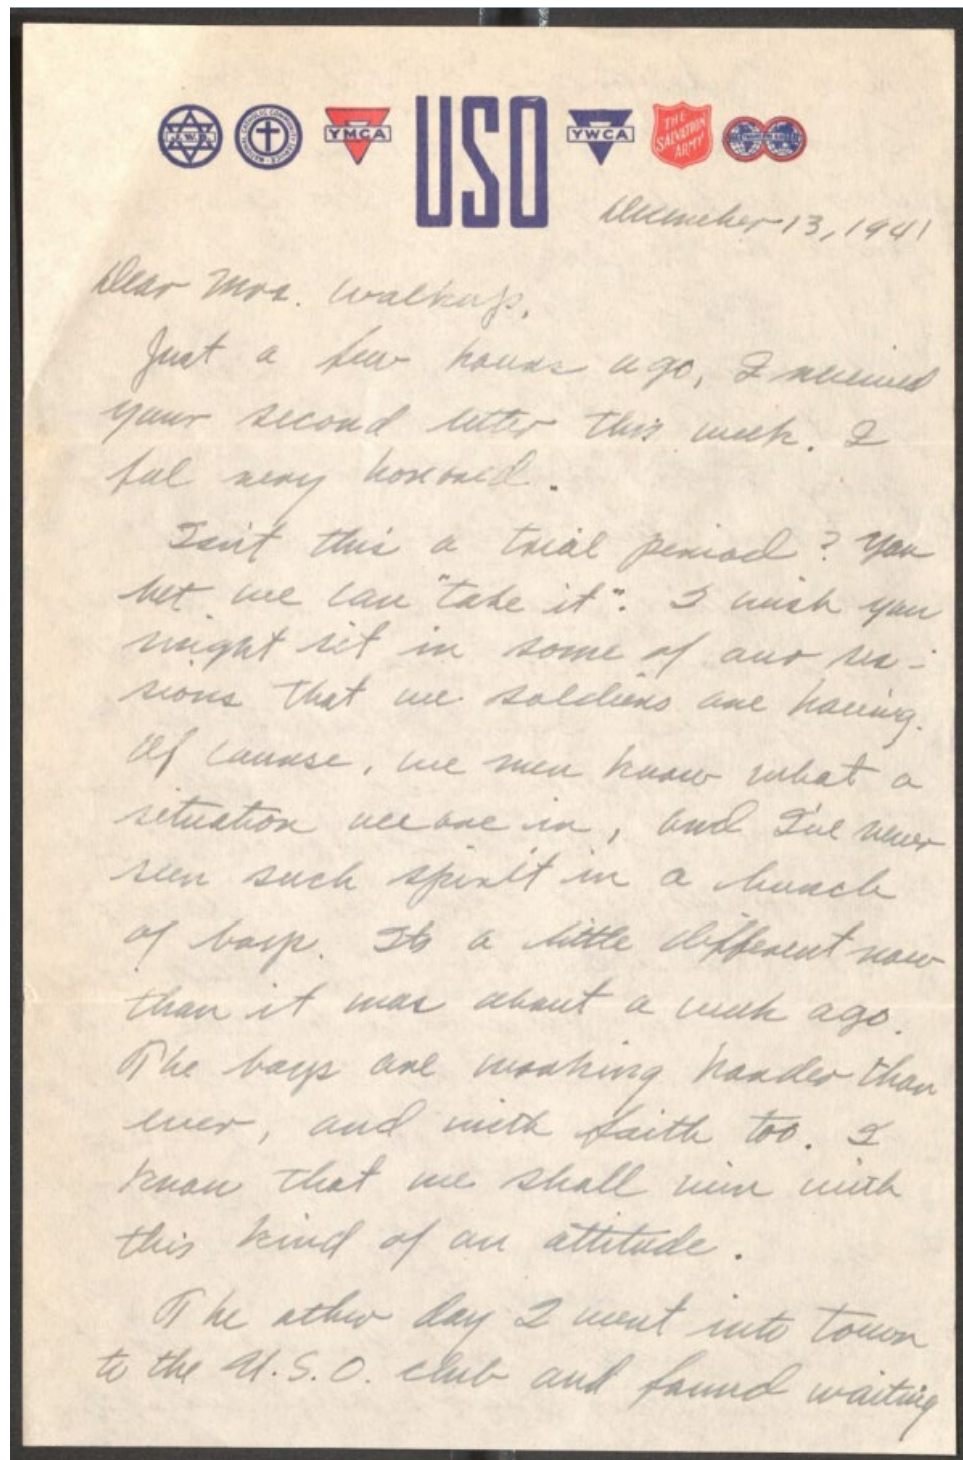 J.W.B.
NATIONAL CATHOLIC COMMUNITY SERVICE
YMCA
USO
YWCA
THE
SALVATION
ARMY
December 13, 1941
Dear Mrs. Walkup,
Just a few hours ago, I received
your second letter this week. I
feel very honored.
Isn't this a trial period? You
bet we can "take it". I wish you
might sit in some of our ses-
sions that we soldiers are having.
Of course, we men know what a
situation we are in, and I've never
seen such spirit in a bunch
of boys. It's a little different now
than it was about a week ago.
The boys are working harder than
ever, and with faith too. I
know that we shall win with
this kind of an attitude.
The other day I went into town
to the U.S.O. club and found waiting